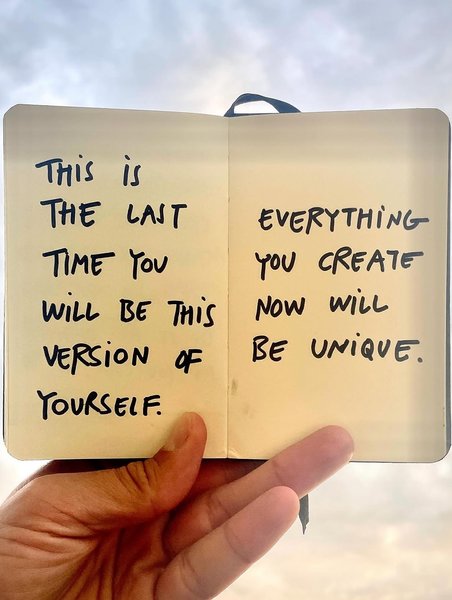 THIS IS
THE LAST
TIME YOU
WILL BE THIS
VERSION OF
YOURSELF.
EVERYTHING
YOU CREATE
NOW WILL
BE UNIQUE.